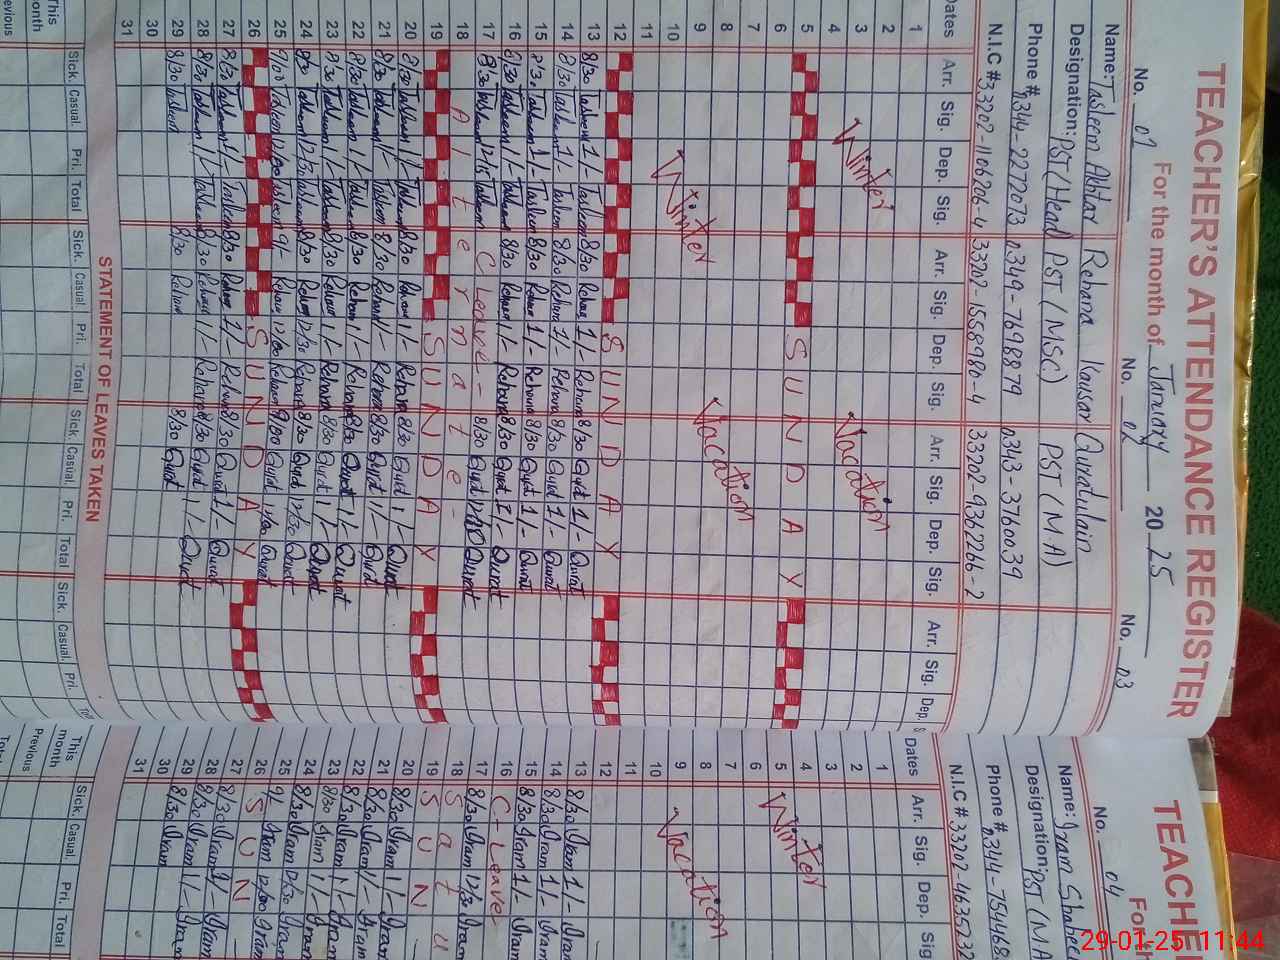 TEACHER'S ATTENDANCE REGISTER
For the month of January 20 25
No. 01 No. 02 No. 03
Name: Tasleem Akhtar Rehana Kausar Quratulain
Designation: PST/Head PST (MSC) PST (M.A)
Phone # 0344-2272073 0349-7698879 0343-3760039
N.I.C # 33202-1106206-4 33202-1558980-4 33202-9362266-2
Dates Arr. Sig. Dep. Sig. Arr. Sig. Dep. Sig. Arr. Sig. Dep. Sig. Arr. Sig. Dep.
1
2
3 Winter Vacation
4
5 SUNDAY
6
7
8
9 Winter Vacation
10
11
12 SUNDAY
13 8/30 Tasleem 1/- Tasleem 8/30 Rehana 1/- Rehana 8/30 Qurat 1/- Qurat
14 8/30 Tasleem 1/- Tasleem 8/30 Rehana 1/- Rehana 8/30 Qurat 1/- Qurat
15 8/30 Tasleem 1/- Tasleem 8/30 Rehana 1/- Rehana 8/30 Qurat 1/- Qurat
16 8/30 Tasleem 1/- Tasleem 8/30 Rehana 1/- Rehana 8/30 Qurat 1/- Qurat
17 8/30 Tasleem 12/15 Tasleem C Leave - 8/30 Qurat Qurat
18 Alternate -
19 SUNDAY
20 8/30 Tasleem 1/- Tasleem 8/30 Rehana 1/- Rehana 8/30 Qurat 1/- Qurat
21 8/30 Tasleem 1/- Tasleem 8/30 Rehana 1/- Rehana 8/30 Qurat 1/- Qurat
22 8/30 Tasleem 1/- Tasleem 8/30 Rehana 1/- Rehana 8/30 Qurat 1/- Qurat
23 8/30 Tasleem 1/- Tasleem 8/30 Rehana 1/- Rehana 8/30 Qurat 1/- Qurat
24 8/30 Tasleem 12/30 Tasleem 8/30 Rehana 12/30 Rehana 8/30 Qurat 12/30 Qurat
25 9/00 Tasleem 12/00 Tasleem 9/- Rehana 12/00 Rehana 9/00 Qurat 12/00 Qurat
26 SUNDAY
27 8/30 Tasleem 1/- Tasleem 8/30 Rehana 1/- Rehana 8/30 Qurat 1/- Qurat
28 8/30 Tasleem 1/- Tasleem 8/30 Rehana 1/- Rehana 8/30 Qurat 1/- Qurat
29 8/30 Tasleem 8/30 Rehana 8/30 Qurat
30
31
STATEMENT OF LEAVES TAKEN
Sick. Casual. Pri. Total Sick. Casual. Pri. Total Sick. Casual. Pri. Total Sick. Casual. Pri.
This
TEACHE
For th
No. 04
Name: Iram Shaheen
Designation: PST (M.A
Phone # 0344-754468
N.I.C # 33202-4635232
Dates Arr. Sig. Dep. Sig
1
2
3
4
5 Winter
6
7
8
9 Vacation
10
11
12
13 8/30 Iram 1/- Iram
14 8/30 Iram 1/- Iram
15 8/30 Iram 1/- Iram
16 C-Leave
17 8/30 Iram 12/30 Iram
18 Satu
19 SUN
20 8/30 Iram 1/- Iram
21 8/30 Iram 1/- Iram
22 8/30 Iram 1/- Iram
23 8/30 Iram 1/- Iram
24 8/30 Iram 12/30 Iram
25 9/- Iram 12/00 Iram
26 SUN
27 8/30 Iram 1/- Iram
28 8/30 Iram 1/- Iram
29 8/30 Iram
30
31
This month
Previous
Sick. Casual. Pri. Total
29-01-25 11:44